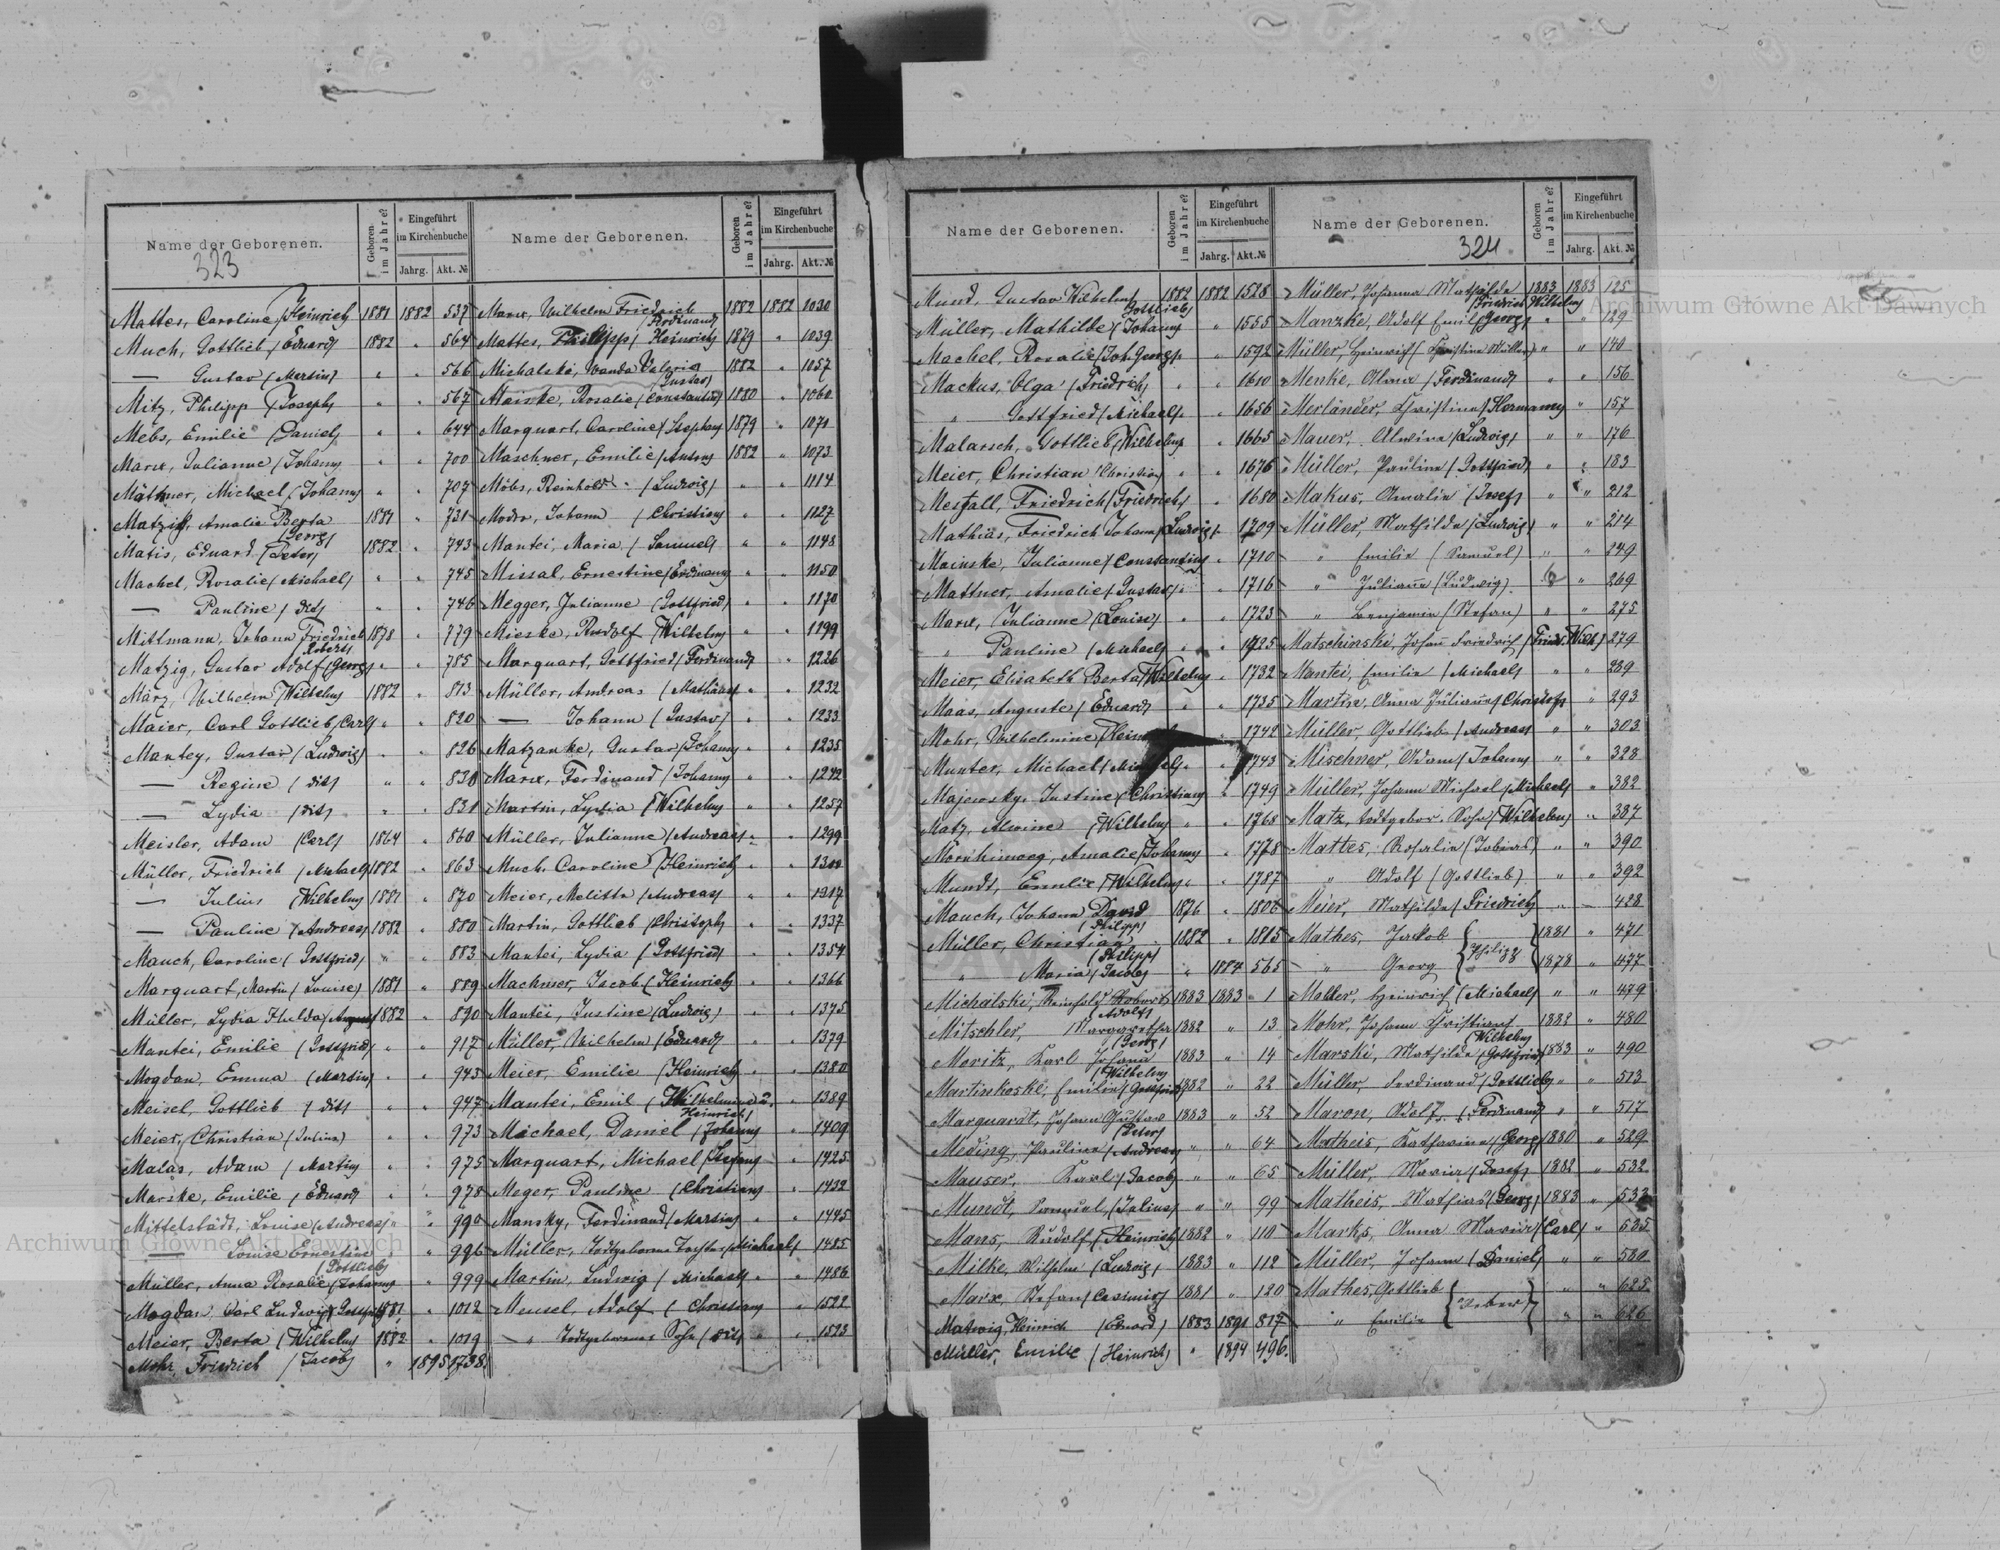 Name der Geborenen.
323
Geboren im Jahre?
Eingeführt im Kirchenbuche
Jahrg. Akt. №
Mattes, Caroline (Heinrich) 1881 1882 537
Much, Gottlieb (Eduard) 1882 " 564
— Gustav (Martin) " " 566
Mitz, Philipp (Joseph) " " 567
Mebs, Emilie (Daniel) " " 644
Marx, Julianne (Johann) " " 700
Mättner, Michael (Johann) " " 707
Matzig, Amalie Berta 1881 " 731
(Georg)
Matis, Eduard (Peter) 1882 " 743
Machel, Rosalie (Michael) " " 745
— Pauline (dito) " " 746
Mittmann, Johann Friedrich 1878 " 779
(Robert)
Matzig, Gustav Adolf (Georg) " " 785
März, Wilhelm (Wilhelm) 1882 " 813
Maier, Carl Gottlieb (Carl) " " 820
Mantey, Gustav (Ludwig) " " 826
— Regine (dito) " " 830
— Lydia (dito) " " 831
Meisler, Adam (Carl) 1864 " 860
Müller, Friedrich (Michael) 1882 " 863
— Julius (Wilhelm) 1881 " 870
— Pauline (Andreas) 1882 " 880
Mauch, Caroline (Gottfried) " " 883
Marquart, Martin (Louise) 1881 " 889
Müller, Lydia Hulda (August) 1882 " 890
Mantei, Emilie (Gottfried) " " 917
Mogdan, Emma (Martin) " " 943
Meisel, Gottlieb (dito) " " 947
Meier, Christian (Julius) " " 973
Malas, Adam (Martin) " " 975
Marske, Emilie (Eduard) " " 978
Mittelstädt, Louise (Andreas) " " 990
— Louise Ernestine " " 996
(Gottlieb)
Müller, Anna Rosalie (Johann) " " 999
Mogdan, Carl Ludwig (Gottfried) 1881 " 1012
Meier, Berta (Wilhelm) 1882 " 1019
Mohr, Friedrich (Jacob) " 1895 1738.
Name der Geborenen.
Geboren im Jahre?
Eingeführt im Kirchenbuche
Jahrg. Akt. №
Marx, Wilhelm Friedrich 1882 1882 1030
(Ferdinand)
Mattes, Philipp (Heinrich) 1879 " 1039
Michalski, Wanda Valeria 1882 " 1057
(Gustav)
Mainske, Rosalie (Constantin) 1880 " 1060
Marquart, Caroline (Stephan) 1879 " 1071
Maschner, Emilie (Anton) 1882 " 1073
Möbs, Reinhold (Ludwig) " " 1114
Moder, Johann (Christian) " " 1127
Mantei, Maria (Samuel) " " 1148
Missal, Ernestine (Ferdinand) " " 1150
Megger, Julianne (Gottfried) " " 1170
Mieske, Rudolf (Wilhelm) " " 1199
Marquart, Gottfried (Ferdinand) " " 1226
Müller, Andreas (Mathäus) " " 1232
— Johann (Gustav) " " 1233
Matzanke, Gustav (Johann) " " 1235
Marx, Ferdinand (Johann) " " 1242
Martin, Lydia (Wilhelm) " " 1257
Müller, Julianne (Andreas) " " 1299
Much, Caroline (Heinrich) " "
Meier, Melitta (Andreas) " " 1317
Martin, Gottlieb (Christoph) " " 1337
Mantei, Lydia (Gottfried) " " 1354
Machmer, Jacob (Heinrich) " " 1366
Mantei, Justine (Ludwig) " " 1375
Müller, Wilhelm (Eduard) " " 1379
Meier, Emilie (Heinrich) " " 1380
Mantei, Emil (Wilhelmine u. " 1389
Heinrich)
Michael, Daniel (Johann) " 1409
Marquart, Michael (Stefan) " 1425
Meger, Pauline (Christian) " 1432
Mansky, Ferdinand (Martin) " " 1445
Müller, Todtgeborene Tochter (Michael) " 1485
Martin, Ludwig (Michael) " " 1486
Meusel, Adolf (Christian) " 1522
— " Todtgeborener Sohn (dito) " " 1523
Name der Geborenen.
Geboren im Jahre?
Eingeführt im Kirchenbuche
Jahrg. Akt. №
Mund, Gustav Wilhelm 1882 1882 1528
(Gottlieb)
Müller, Mathilde (Johann) " 1555
Machel, Rosalie (Joh. Georg) " 1592
Mackus, Olga (Friedrich) " " 1610
" Gottfried (Michael) " 1656
Malarsch, Gottlieb (Wilhelm) " 1665
Meier, Christian (Christian) " " 1676
Mestall, Friedrich (Friedrich) " 1680
Mathias, Friedrich Johann (Ludwig) " 1709
Mainske, Julianne (Constantin) " 1710
Mattner, Amalie (Gustav) " " 1716
Marx, Julianne (Louise) " " 1723
" Pauline (Michael) " " 1725
Meier, Elisabeth Berta (Wilhelm) " 1732
Maas, Auguste (Eduard) " " 1735
Mohr, Wilhelmine " 1742
Munter, Michael " " 1743
Majewsky, Justine (Christian) " 1749
Matz, Alwine (Wilhelm) " " 1768
Mornhinweg, Amalie (Johann) " 1778
Mundt, Emilie (Wilhelm) " " 1787
Mauch, Johann David 1876 " 1806
(Philipp)
Müller, Christian 1882 " 1815
(Philipp)
" Maria (Jacob) " 1884 565
Michalski, Reinhold Robert 1883 1883 1
(Adolf)
Mitschler, Margaretha 1882 " 13
(Georg)
Moritz, Karl Johann 1883 " 14
(Wilhelm)
Martinkoski, Emilie (Gottfried) 1882 " 22
Marquardt, Johann Gustav 1883 " 52
(Peter)
Meding, Pauline (Andreas) " " 64
Mauser, Karl (Jacob) " " 65
Mundt, Samuel (Julius) " " 99
Mans, Rudolf (Heinrich) 1882 " 110
Milke, Wilhelm (Ludwig) 1883 " 112
Marx, Stefan (Casimir) 1881 " 120
Matwig, Heinrich (Eduard) 1883 1891 817
Müller, Emilie (Heinrich) " 1894 496.
Name der Geborenen.
324
Geboren im Jahre?
Eingeführt im Kirchenbuche
Jahrg. Akt. №
Müller, Johanna Mathilde 1883 1883 125
(Friedrich Wilhelm)
Manzke, Adolf Emil (Georg) " " 129
Müller, Heinrich (Christine Müller) " " 140
Menke, Alma (Ferdinand) " " 156
Merländer, Christine (Hermann) " 157
Mauer, Alwine (Ludwig) " " 176
Müller, Pauline (Gottfried) " " 183
Makus, Amalie (Josef) " " 212
Müller, Mathilde (Ludwig) " " 214
" Emilie (Samuel) " " 249
" Julianne (Ludwig) " " 269
" Benjamin (Stefan) " " 275
Matschinski, Johann Friedrich (Friedr. Wilh.) 279
Mantei, Emilie (Michael) " " 289
Martin, Anna Julianne (Christof) " 293
Müller, Gottlieb (Andreas) " " 303
Mischner, Adam (Johann) " " 328
Müller, Johann Michael (Michael) " 382
Matz, todtgebor. Sohn (Wilhelm) " 387
Mattes, Rosalie (Tobias) " " 390
" Adolf (Gottlieb) " " 392
Meier, Mathilde (Friedrich) " — 428
Mathes, Jakob 1881 " 471
(Philipp)
" Georg 1878 " 477
Moller, Heinrich (Michael) " " 479
Mohr, Johann Christian 1882 " 480
(Wilhelm)
Marski, Mathilde (Gottfried) 1883 " 490
Müller, Ferdinand (Gottlieb) " " 513
Maron, Adolf (Ferdinand) " " 517
Matheis, Katharina (Georg) 1880 " 529
Müller, Maria (Josef) 1882 " 532
Matheis, Mathias (Georg) 1883 " 533
Marks, Anna Maria (Carl) "
Müller, Johann (Daniel) " " 580
Mathes, Gottlieb " " 625
" Emilie " " 626
Archiwum Główne Akt Dawnych
Archiwum Główne Akt Dawnych